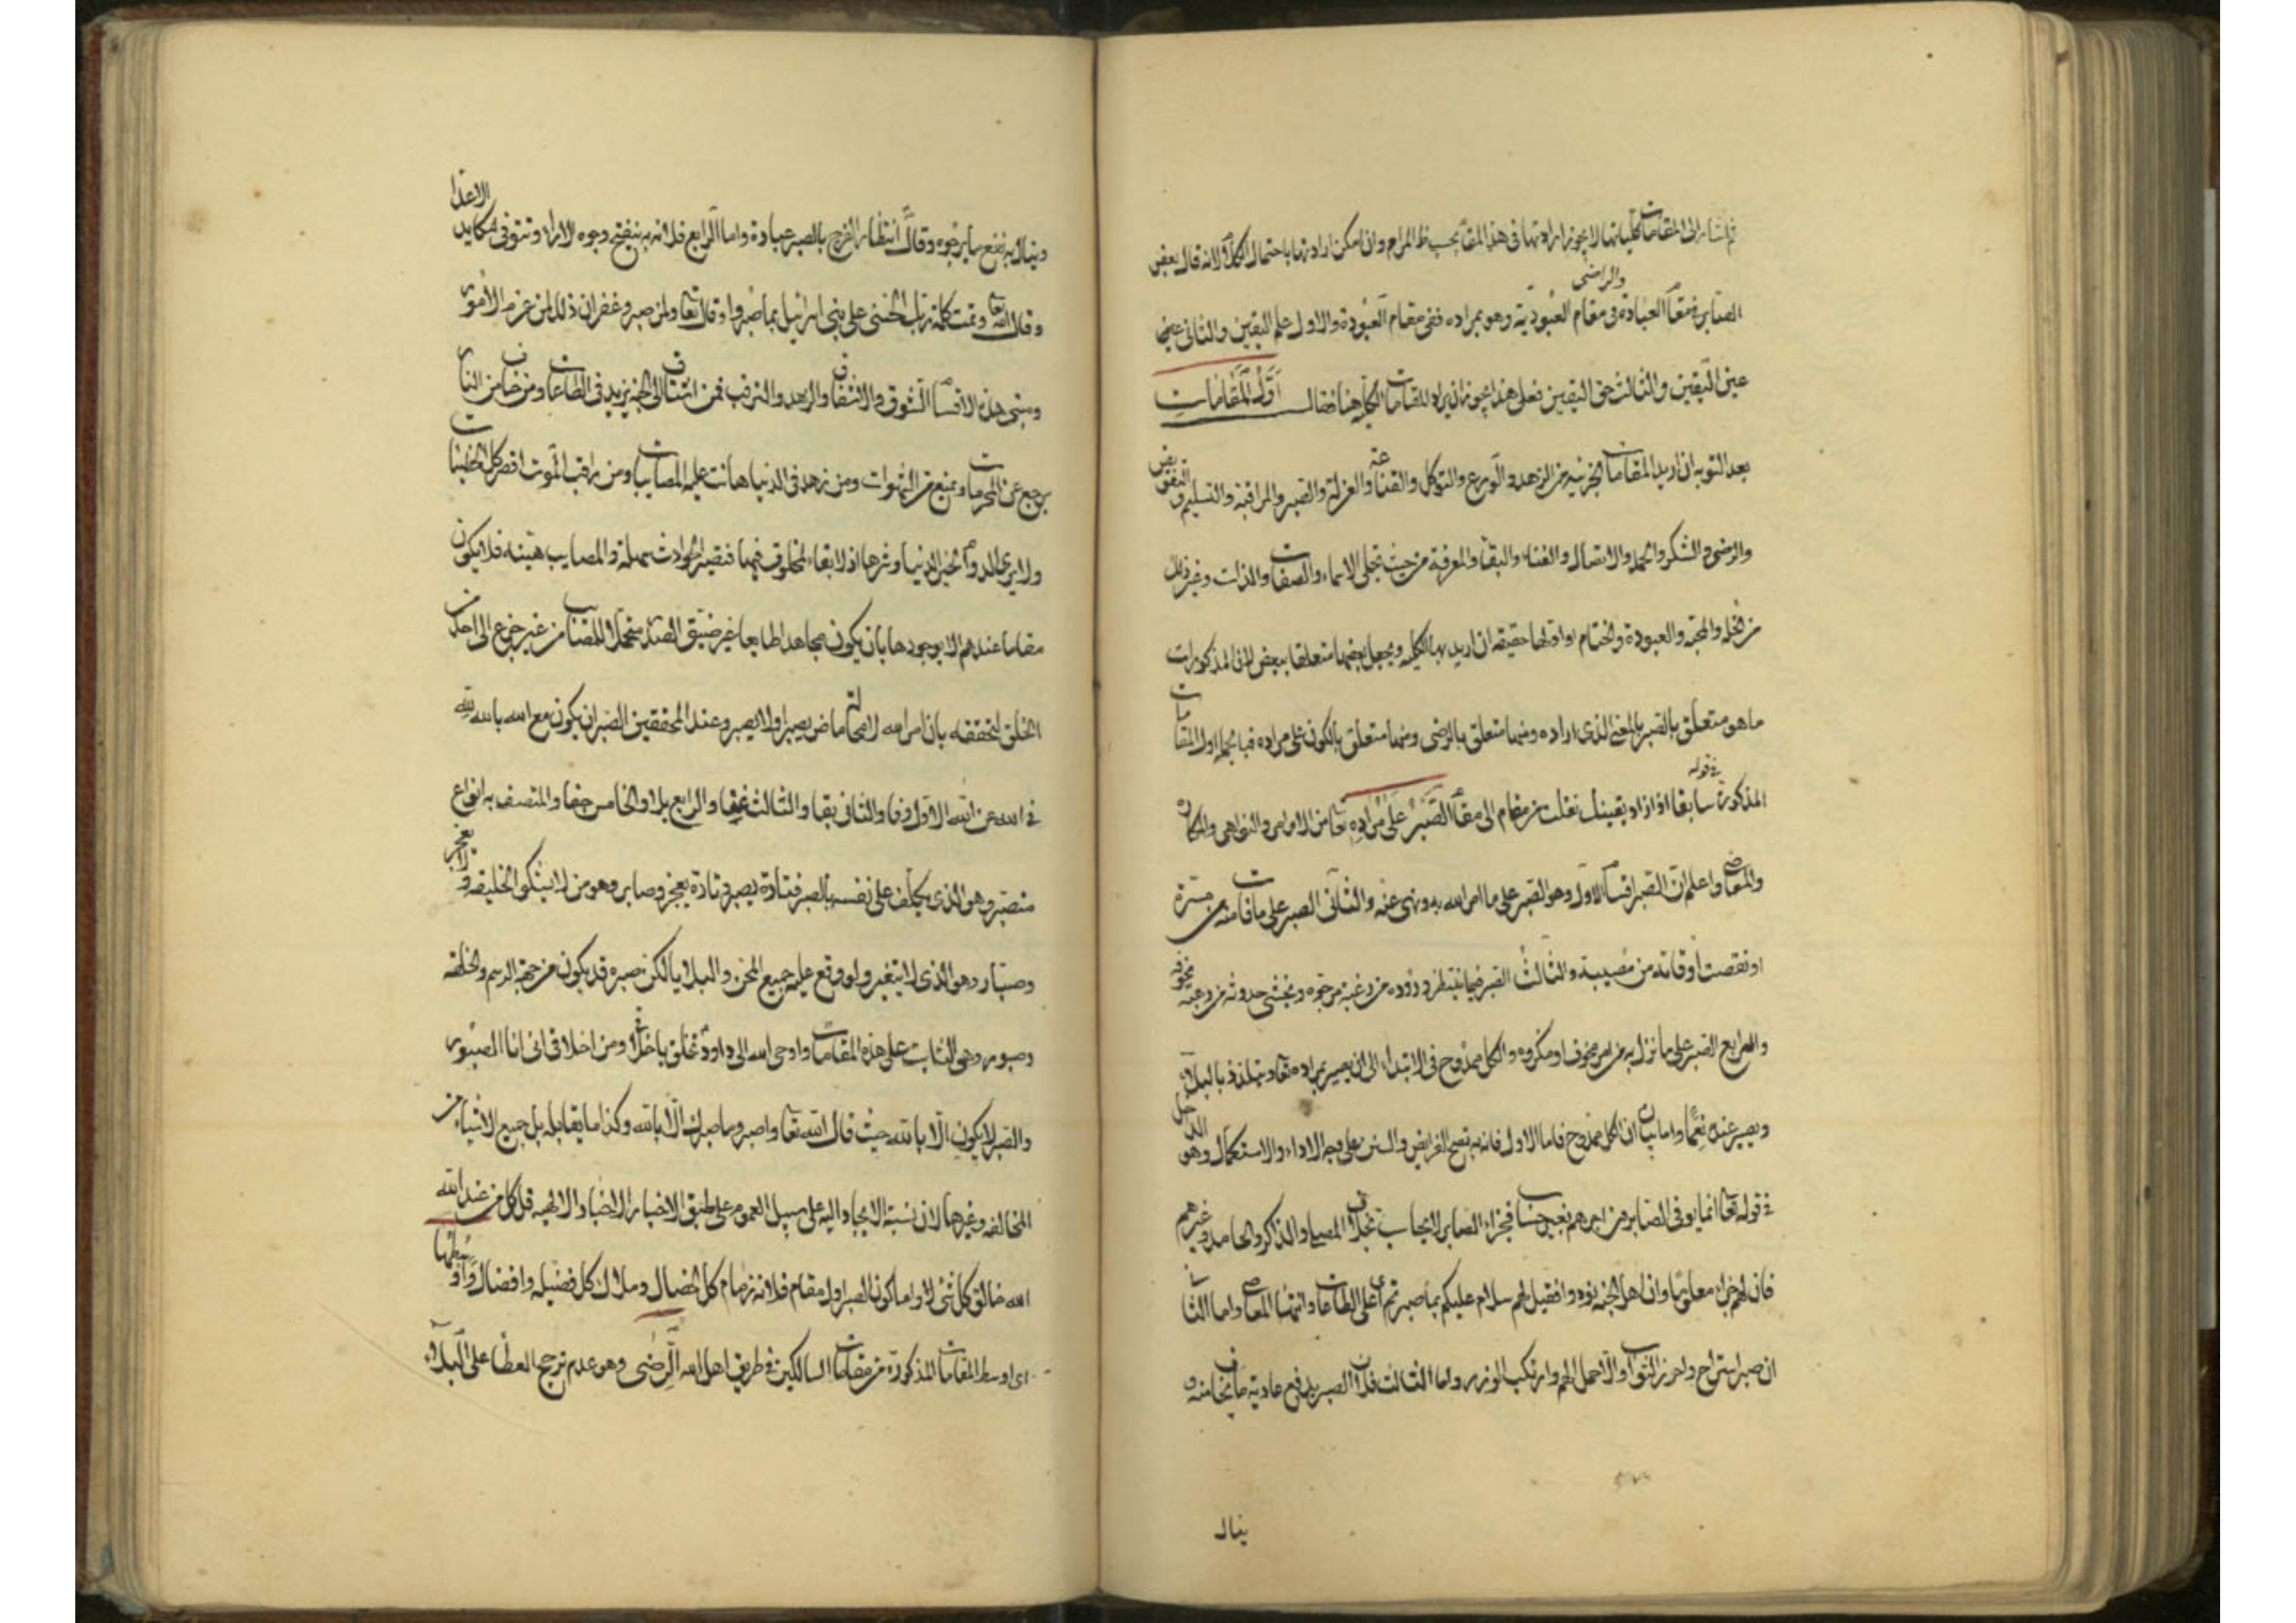 ثم اشار الى المقامات كلياتها لا يجوز ارادتها فى هذا المقام بحسب المرام وان امكن ارادتها باحتمال الكلام لانه قال بعض
الصابر فى مقام العبادة والراضى فى مقام العبودية وهو بمراده ففى مقام العبودة والاول علم اليقين والثانى عين
عين اليقين والثالث حق اليقين فعلى هذا يجوز ان يراد المقامات الكل هنا فقال اَوَّلُ الْمَقَامَاتِ
بعد التوبه ان اريد المقامات الجزئية من الزهد والورع والتوكل والقناعة والعزلة والصبر والمراقبة والتسليم والتفويض
والرضى والشكر والحمد والاتصال والفناء والبقاء والمعرفة من حيث تجلى الاسماء والصفات والذات وغير ذلك
من الخلة والمحبة والعبودة والختام او اولها حقيقة ان اريد بها الكلية ويجعل بعضها متعلقا ببعض اذ فى المذكورات
ما هو متعلق بالصبر بالمعنى الذى اراده ومنها متعلق بالرضى ومنها متعلق بالكون على مراده فبالجملة اول المقامات
المذكورة سابقا فى قوله اذا زاد يقينك نقلت من مقام الى مقام الصَّبْرُ عَلَى مُرَادِهِ تعا من الاوامر والنواهى والمكاره
والمعاصى واعلم ان الصبر اقسام الاول وهو الصبر على ما امر الله به ونهى عنه والثانى الصبر على ما فات منه من مسرة
او نقصت اوقاته من مصيبة والثالث الصبر فيما ينتظر وروده من رغبة مرجوه ويخشى حدوثه من رهبة مخوفه
والرابع الصبر على ما نزل به من امر مخوف او مكروه والكل ممدوح فى الابتداء الى ان يصير بمراده تعا ويتلذذ بالبلاء
ويصير عنده نعما واما بيان ان الكل ممدوح فاما الاول فانه به تصح الفرايض والسنن على وجه الاداء والاستكمال وهو الداخل
فى قوله تعا انما يوفى الصابرون اجرهم بغير حساب فجزاء الصابر لا يحاسب بخلاف المصلى والذاكر والحامد وغيرهم
فان لهم جزاء معلوما وان اهل الجنة نودوا فقيل لهم سلام عليكم بما صبرتم اى على الطاعات وانتهاء المعاصى واما الثانى
ان صبر استراح واحرز الثواب والا حمل الهم وارتكب الوزر واما الثالث فلان الصبر يدفع عادية ما يخاف منه و
ينال
وينال به نفع ما يرجوه وقال انتظار الفرج بالصبر عبادة واما الرابع فلانه به ينفتح وجوه الاراء وتتوقى مكايد الاعداء
وقال الله تعا وتمت كلمة ربك الحسنى على بنى اسرائيل بما صبروا وقال تعا ولمن صبر وغفر ان ذلك لمن عزم الامور
ومبنى هذه الاقسام الشوق والاشفاق والزهد والترقب فمن اشتاق الى الجنة يزيد فى الطاعات ومن خاف من النار
يرجع عن المحرمات ويمتنع من الشهوات ومن زهد فى الدنيا هانت عليه المصائب ومن راقب الموت اقصر كل الخطيئات
ولا يرى الدوام لخير الدنيا وشرها اذ لا بقاء لمخلوق فيها فتصير الحوادث سهلة والمصايب هينة فلا يكون
مقاما عندهم الا بوجودها بان يكون مجاهدا طايعا غير ضيق الصدر متحملا للمصائب من غير جزع الى احد من
الخلق لتحققه بان امر الله له لا محالة ماض يصبر او لا يصبر وعند المحققين الصبر ان يكون مع الله بالله لله
فى الله عن الله الاول وفا والثانى بقا والثالث غنا والرابع بلا والخامس جفا والمتصف به انواع
متصبر وهو الذى يكلف على نفسه بالصبر فتارة يصبر وتارة يعجز وصابر وهو من لا يشكو الخليقة ولا يعجز
وصبار وهو الذى لا يتغير ولو وقع عليه جميع المحن والبلايا لكن صبره قد يكون من جهة الرسم والخلقه
وصبور وهى الثابت على هذه المقامات واوحى الله الى داود تخلق باخلاقى ومن اخلاقى انى انا الصبور
والصبر لا يكون الا بالله حيث قال الله تعا واصبر وما صبرك الا بالله وكذا ما يقابله بل جميع الاشياء من
المخالفه وغيرها لان نسبة الايجاد اليه على سبيل العموم على طبق الاخبار الالهيه قل كل من عند الله
الله خالق كل شئ واما كون الصبر اول مقام فلانه زمام كل الخصال وملاك كل فضيلة وافضال وَاَوْسَطُهَا
اى اوسط المقامات المذكورة من مقامات السالكين فى طريق اهل الله الرِّضٰى وهو عدم ترجيح العطاء على البلاء